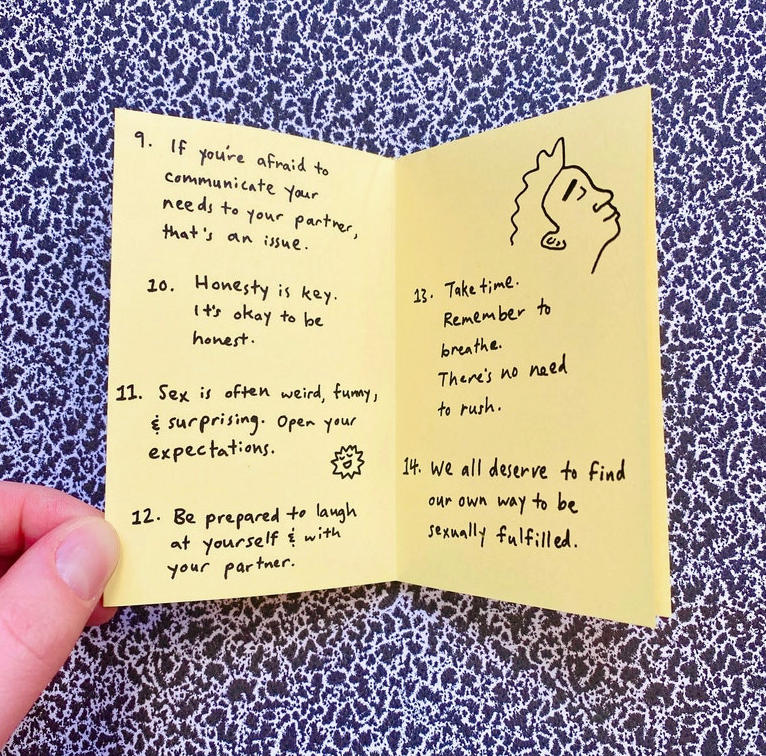 9. If you're afraid to
communicate your
needs to your partner,
that's an issue.
10. Honesty is key.
It's okay to be
honest.
11. Sex is often weird, funny,
& surprising. Open your
expectations.
12. Be prepared to laugh
at yourself & with
your partner.
13. Take time.
Remember to
breathe.
There's no need
to rush.
14. We all deserve to find
our own way to be
sexually fulfilled.